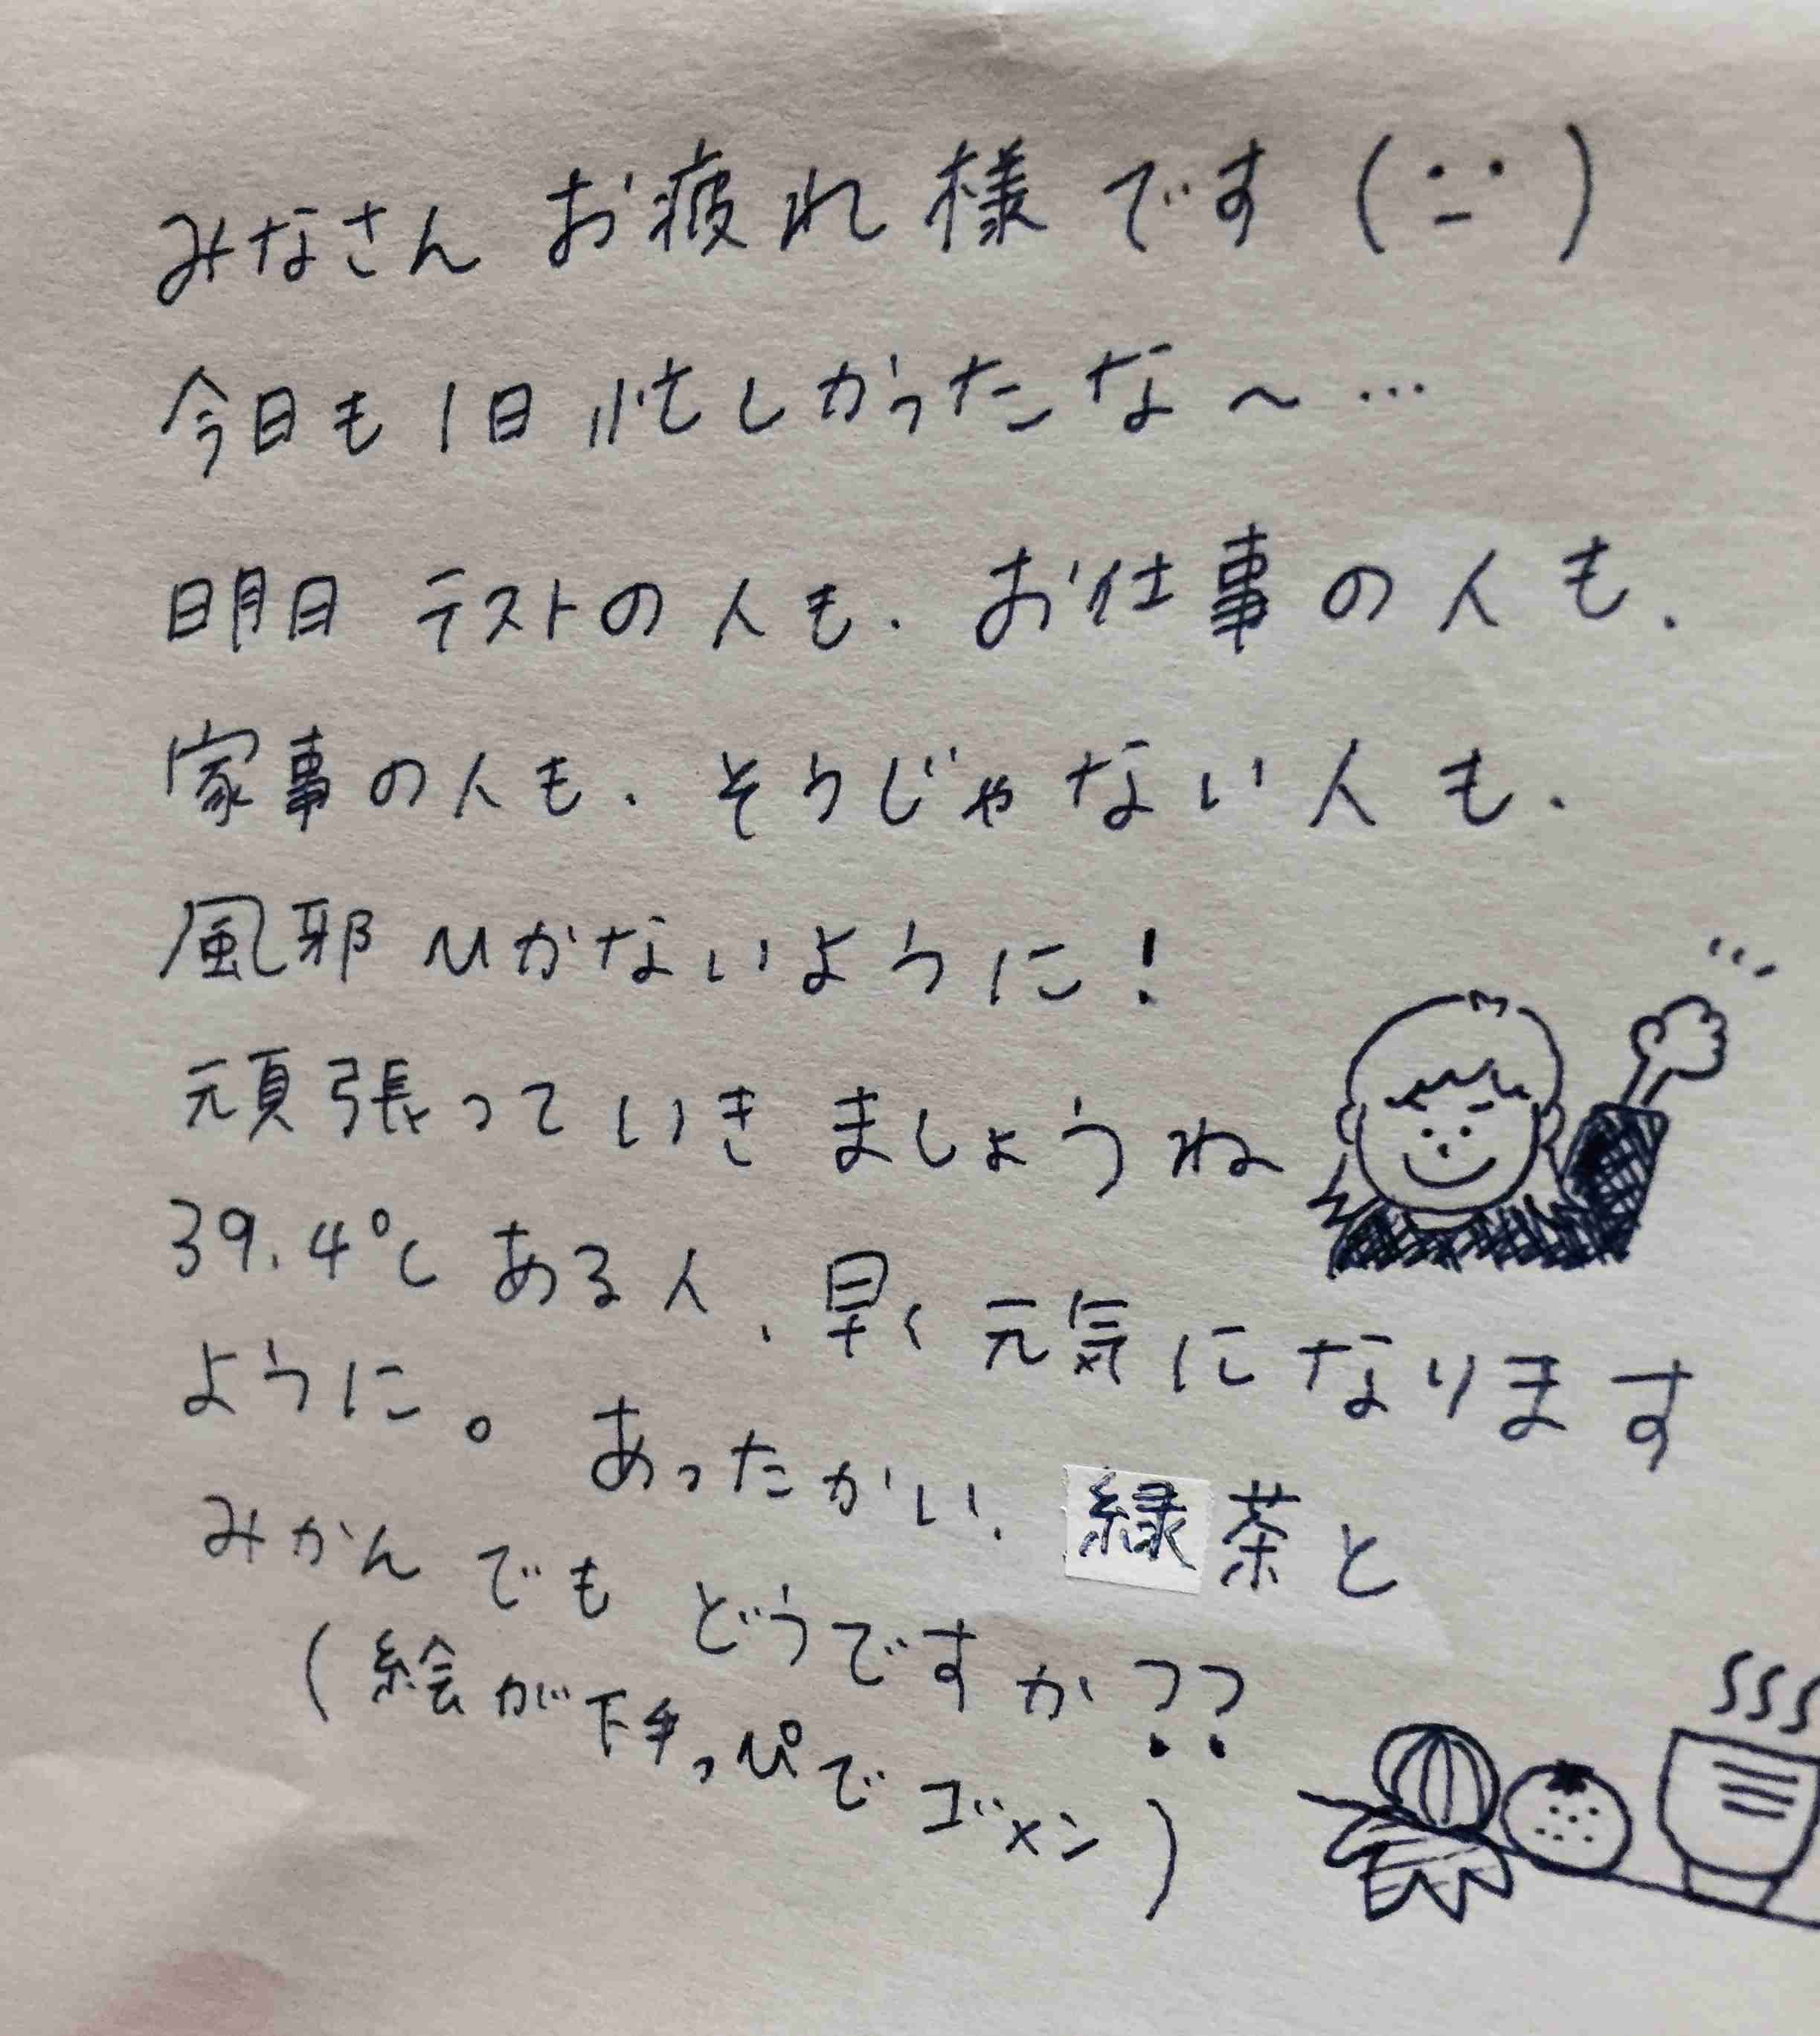 みなさん お疲れ様です(・_・)
今日も1日忙しかったな〜…
明日 テストの人も、お仕事の人も、
家事の人も、そうじゃない人も、
風邪ひかないように!
頑張っていきましょうね
39.4℃ある人、早く元気になります
ように。あったかい、緑茶と
みかんでもどうですか??
(絵が下手っぴでゴメン)